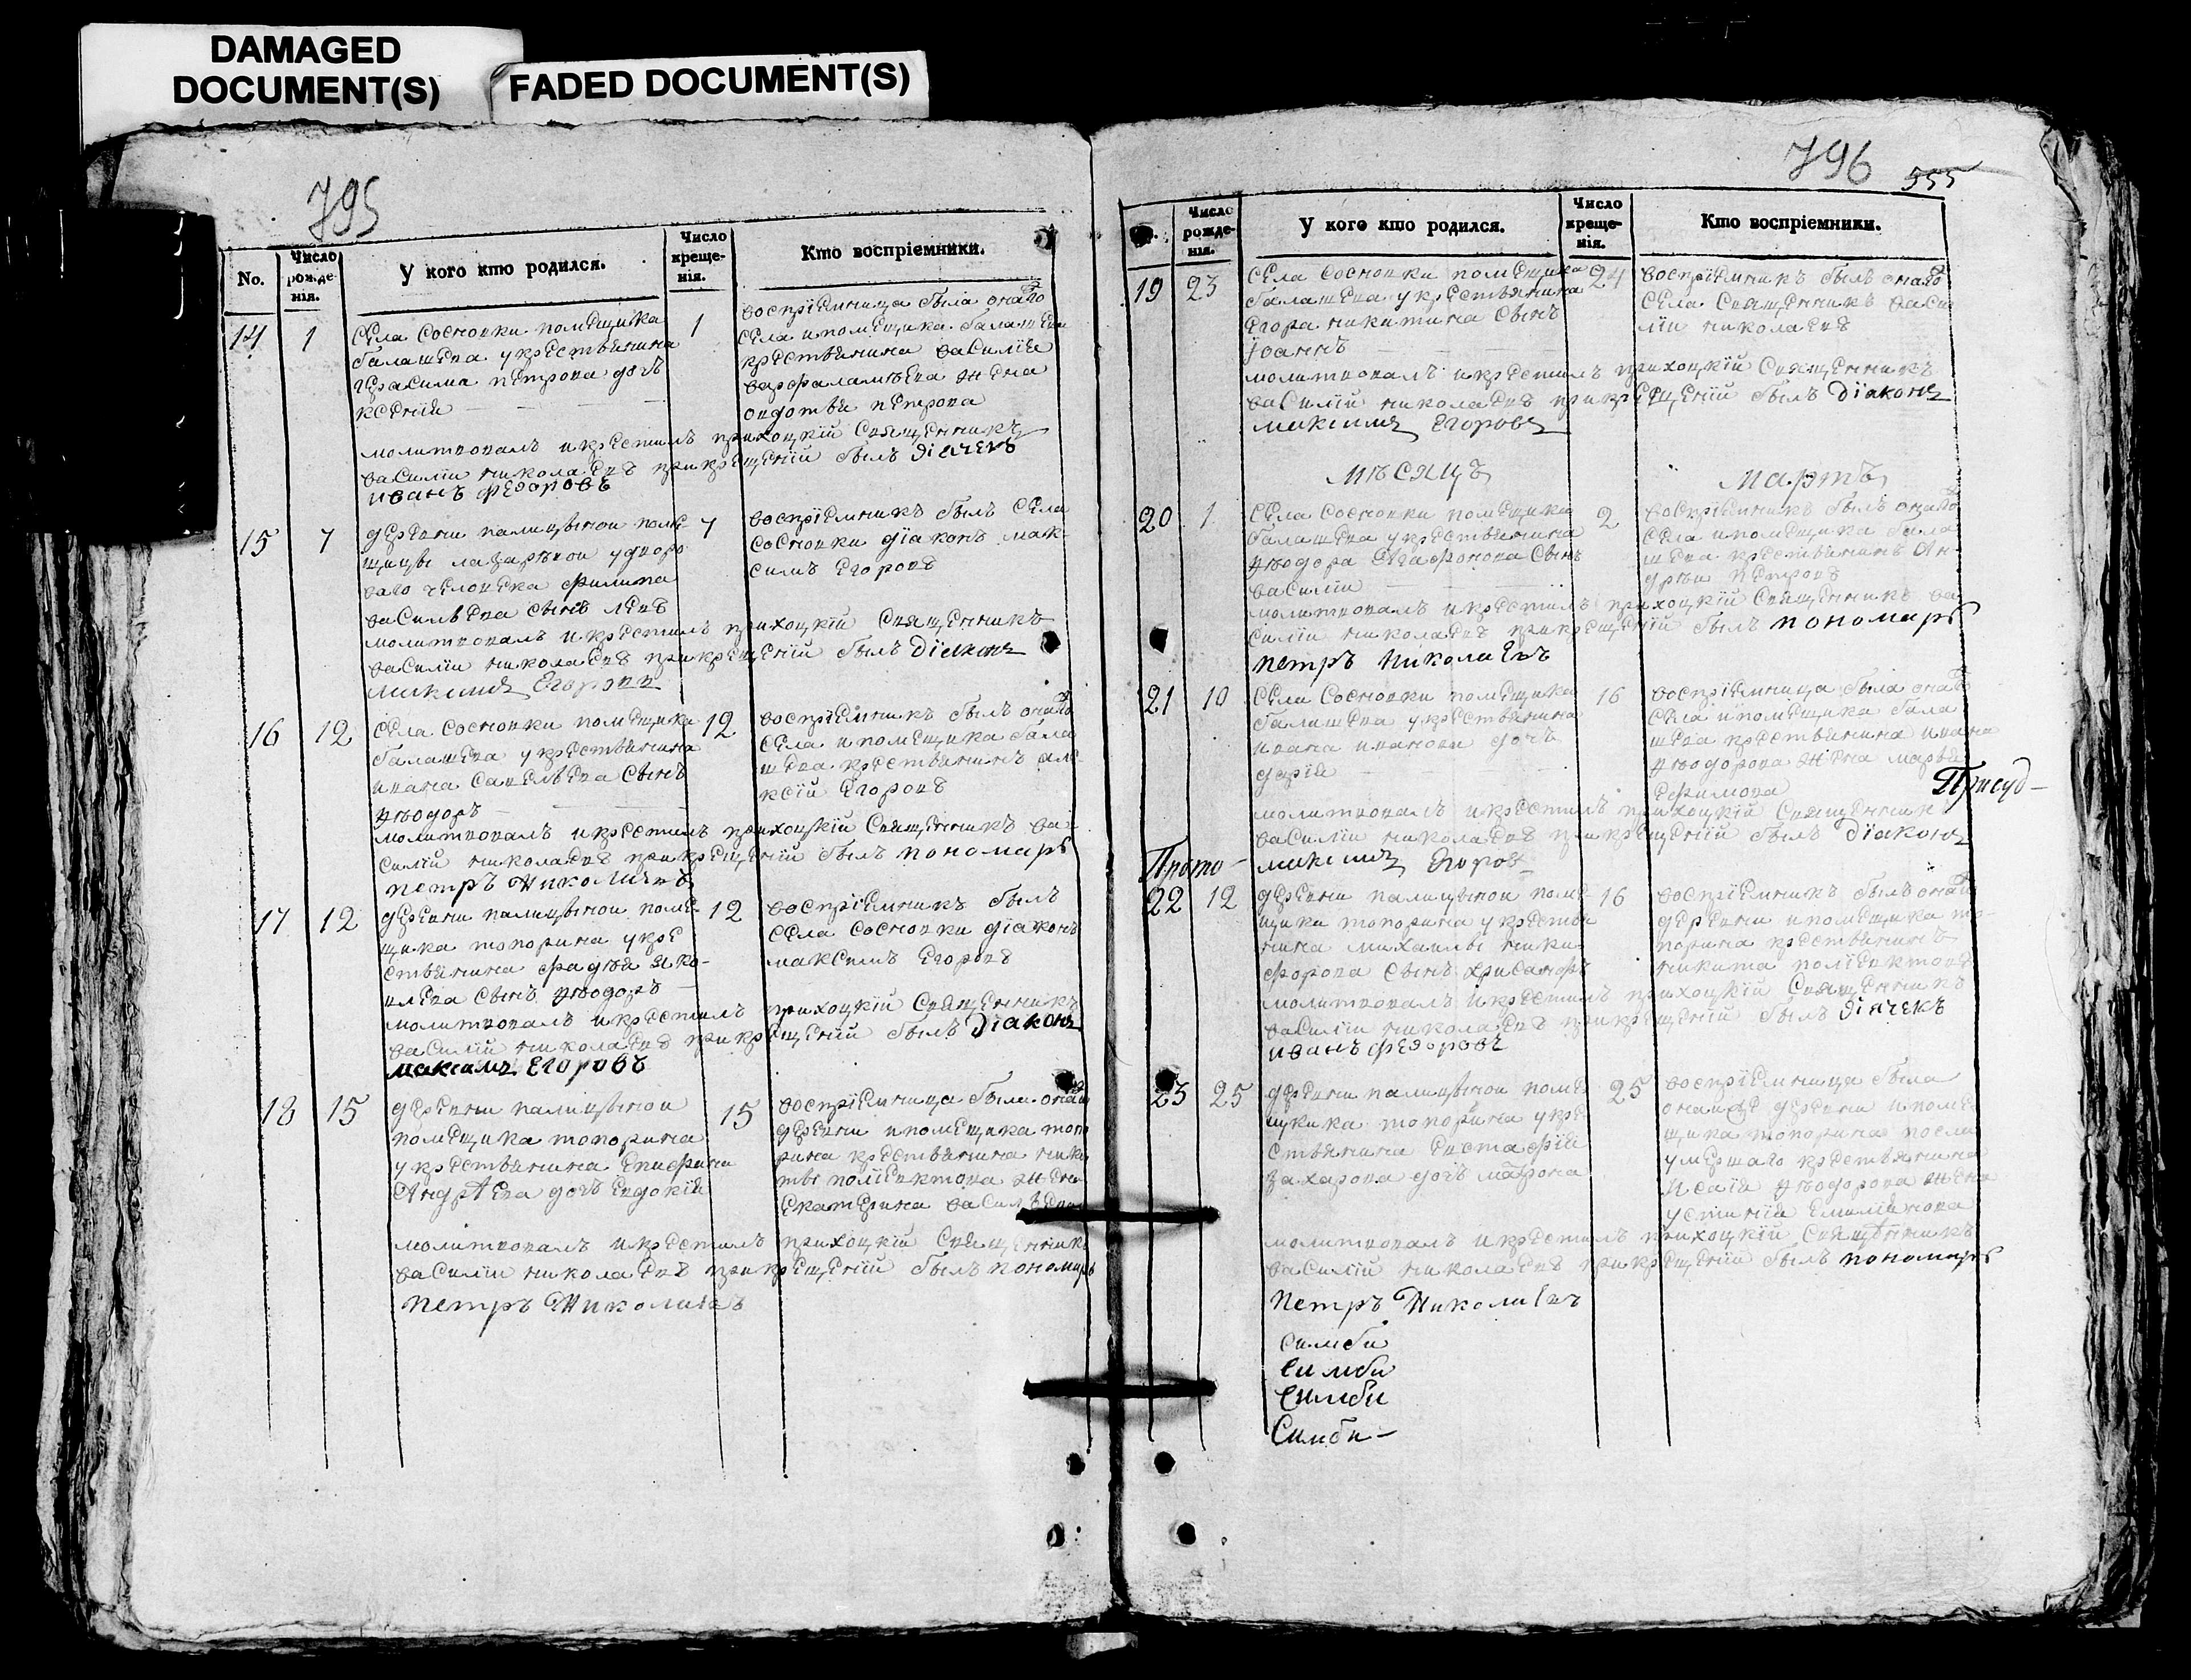 DAMAGED
DOCUMENT(S)
FADED DOCUMENT(S)
795
No.
Число
рожде-
нія.
У кого кто родился.
Число
креще-
нія.
Кто воспріемники.
14
1
села сосновки помещика
балашева у крестьянина
герасима петрова дочь
ксения
1
воспріемница была онаго
села и помещика балашева
крестьянина василия
варфаламеева жена
овдотья петрова
молитвовалъ и крестилъ прихоцкій священникъ
василіи николаевъ при крещеніи былъ діячекъ
иванъ федоровъ
15
7
деревни палицыной поме-
щицы лазаревой у дворо
ваго человека филипа
васильева сынъ левъ
7
воспріемникъ былъ села
сосновки діаконъ мак-
симъ егоровъ
молитвовалъ и крестилъ прихоцкій священникъ
василіи николаевъ при крещеніи былъ діаконъ
максимъ егоровъ
16
12
села сосновки помещика
балашева у крестьянина
ивана савельева сынъ
ѳеодоръ
12
воспріемникъ былъ онаго
села и помещика бала
шева крестьянинъ але
ксій егоровъ
молитвовалъ и крестилъ прихоцкій священникъ ва-
силій николаевъ при крещеніи былъ пономарь
петръ николаевъ
17
12
деревни палицыной поме-
щика топорина у кре
стьянина фадѣя яко-
влева сынъ ѳеодоръ
12
воспріемникъ былъ
села сосновки діаконъ
максимъ егоровъ
молитвовалъ и крестилъ прихоцкій священникъ
василій николаевъ при крещеніи былъ діаконъ
максимъ егоровъ
18
15
деревни палицыной
помещика топорина
у крестьянина епифана
андреева дочь евдокія
15
воспріемница была онаго
деревни и помещика топо
рина крестьянина ники
ты поліевктова жена
екатерина васильева
молитвовалъ и крестилъ прихоцкій священникъ
василіи николаевъ при крещеніи былъ пономарь
петръ николаевъ
796
555
Число
рожде-
нія.
У кого кто родился.
Число
креще-
нія.
Кто воспріемники.
19
23
села сосновки помещика
балашева у крестьянина
егора никитина сынъ
іоаннъ
24
воспріемникъ былъ онаго
села священникъ васи
лій николаевъ
молитвовалъ и крестилъ прихоцкій священникъ
василій николаевъ при крещеніи былъ діаконъ
максимъ егоровъ
мѣсяцъ
мартъ
20
1
села сосновки помещика
балашева у крестьянина
ѳеодора агафонова сынъ
василіи
2
воспріемникъ былъ онаго
села и помещика бала
шева крестьянинъ ан-
дрѣи петровъ
молитвовалъ и крестилъ прихоцкій священникъ ва-
силіи николаевъ при крещеніи былъ пономарь
петръ николаевъ
21
10
села сосновки помещика
балашева у крестьянина
ивана иванова дочь
дарія
16
воспріемница была онаго
села и помещика бала
шева крестьянина ивана
ѳеодорова жена марья
ефимова
Присуд-
молитвовалъ и крестилъ прихоцкій священникъ
василіи николаевъ при крещеніи былъ діаконъ
Прото-
максимъ егоровъ
22
12
деревни палицыной поме
щика топорина у крестья
нина михаилы ники-
форова сынъ хрисанфъ
16
воспріемникъ былъ онаго
деревни и помещика то-
порина крестьянинъ
никита поліевктовъ
молитвовалъ и крестилъ прихоцкій священникъ
василіи николаевъ при крещеніи былъ діячекъ
иванъ федоровъ
23
25
деревни палицыной поме
щика топорина у кре
стьянина евстафія
захарова дочь матрона
25
воспріемница была
деревни и поме
щика топорина посла
умершаго крестьянина
исаія ѳеодорова жена
устинія емиліянова
молитвовалъ и крестилъ прихоцкій священникъ
василій николаевъ при крещеніи былъ пономарь
петръ николаевъ
симби
симби
симби
Симби-